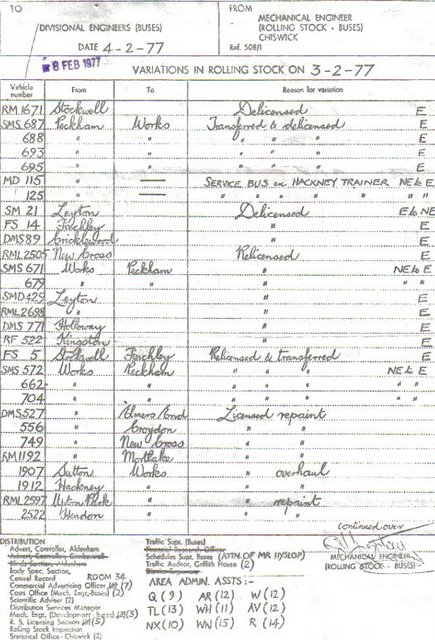 TO
DIVISIONAL ENGINEERS (BUSES)
DATE 4-2-77
FROM
MECHANICAL ENGINEER
(ROLLING STOCK - BUSES)
CHISWICK
Ref. 508/1
8 FEB 1977
VARIATIONS IN ROLLING STOCK ON 3-2-77
Vehicle number From To Reason for variation
RM 1671 Stockwell Delicensed E
SMS 687 Peckham Works Transferred & delicensed E
688 " " " " " E
693 " " " " " E
695 " " " " " E
MD 115 " — SERVICE BUS en HACKNEY TRAINER NE to E
125 " — " " " " " "
SM 21 Leyton Delicensed E to NE
FS 14 Finchley " E
DMS 89 Cricklewood " E
RML 2505 New Cross Relicensed E
SMS 671 Works Peckham " NE to E
679 " " " " "
SMD 429 Leyton " E
RML 2698 " " E
DMS 771 Holloway " E
RF 522 Kingston " E
FS 5 Stockwell Finchley Relicensed & transferred E
SMS 572 Works Peckham " " " NE to E
662 " " " " " " "
704 " " " " " " "
DMS 527 " Elmers End Licensed repaint
556 " Croydon " "
749 " New Cross " "
RM 1192 " Mortlake " "
1907 Sutton Works " overhaul
1912 Hackney " " "
RML 2597 Upton Park " " repaint
2522 Hendon " " "
continued over
MECHANICAL ENGINEER
(ROLLING STOCK - BUSES)
DISTRIBUTION
Advert. Controller, Aldenham
Body Spec. Section,
Central Record ROOM 34
Commercial Advertising Officer (7)
Costs Office (Mech. Engr.-Buses) (2)
Scientific Adviser (2)
Distribution Services Manager
Mech. Engr. (Development Buses) (3)
R. S. Licensing Section (5)
Rolling Stock Inspection
Statistical Office - Chiswick (2)
Traffic Supt. (Buses)
Schedules Supt. Buses (ATTN. OF MR HYSLOP)
Traffic Auditor, Griffith House (2)
AREA ADMIN. ASSTS:-
Q (9) AR (12) W (12)
TL (13) WH (11) AV (12)
NX (10) WN (15) R (14)